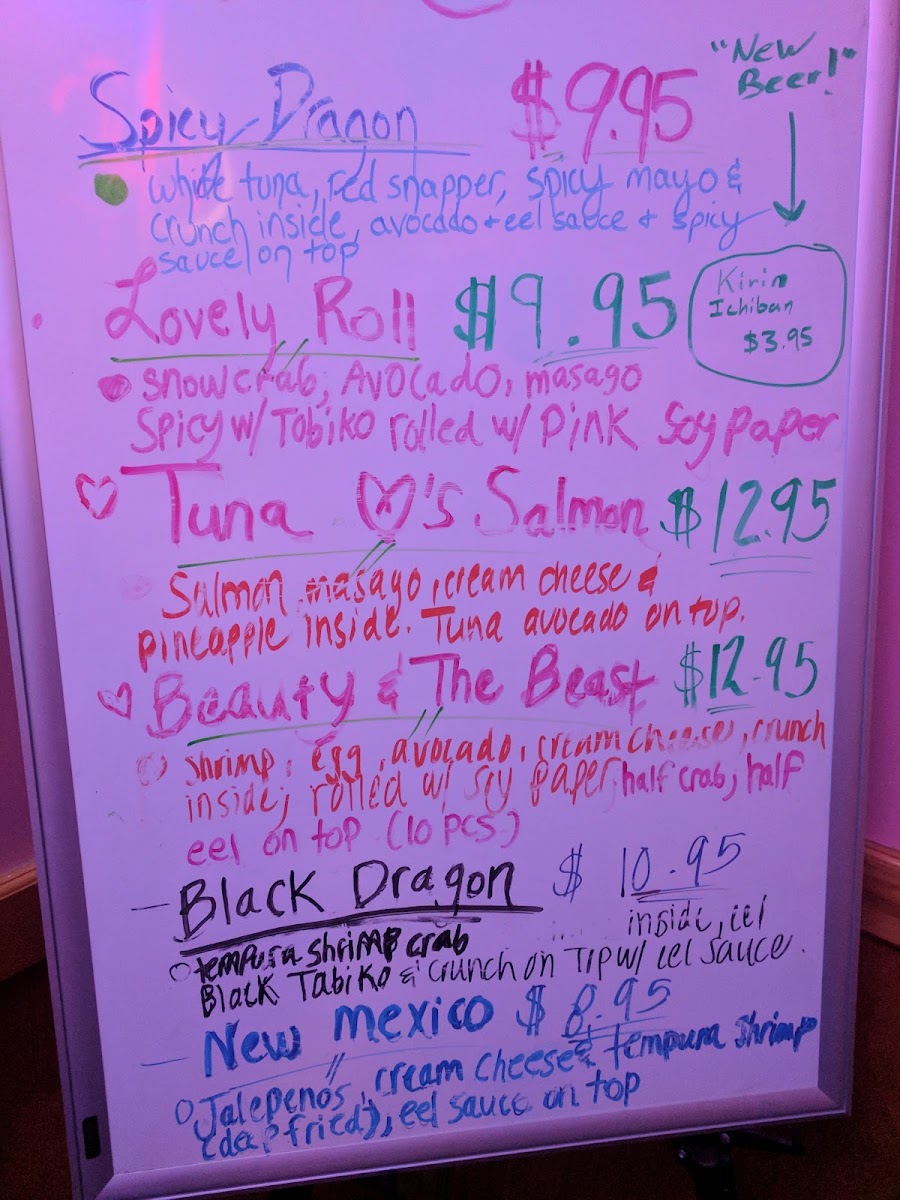 Spicy Dragon $9.95
"New
Beer!"
white tuna, red snapper, spicy mayo &
crunch inside, avocado + eel sauce + spicy
sauce on top
Lovely Roll $9.95
Kirin
Ichiban
$3.95
snow crab, AVOCADO, masago
Spicy w/ Tobiko rolled w/ PINK Soy paper
Tuna ♡'s Salmon $12.95
Salmon, masago, cream cheese &
pineapple inside. Tuna avocado on top.
Beauty & The Beast $12.95
Shrimp, egg, avocado, cream cheese, crunch
inside; rolled w/ soy paper, half crab, half
eel on top (10 pcs.)
Black Dragon $10.95
tempura shrimp crab inside, eel
Black Tabiko & crunch on Top w/ eel sauce.
New mexico $8.95
Jalepenos, cream cheese & tempura shrimp
(deep fried), eel sauce on top